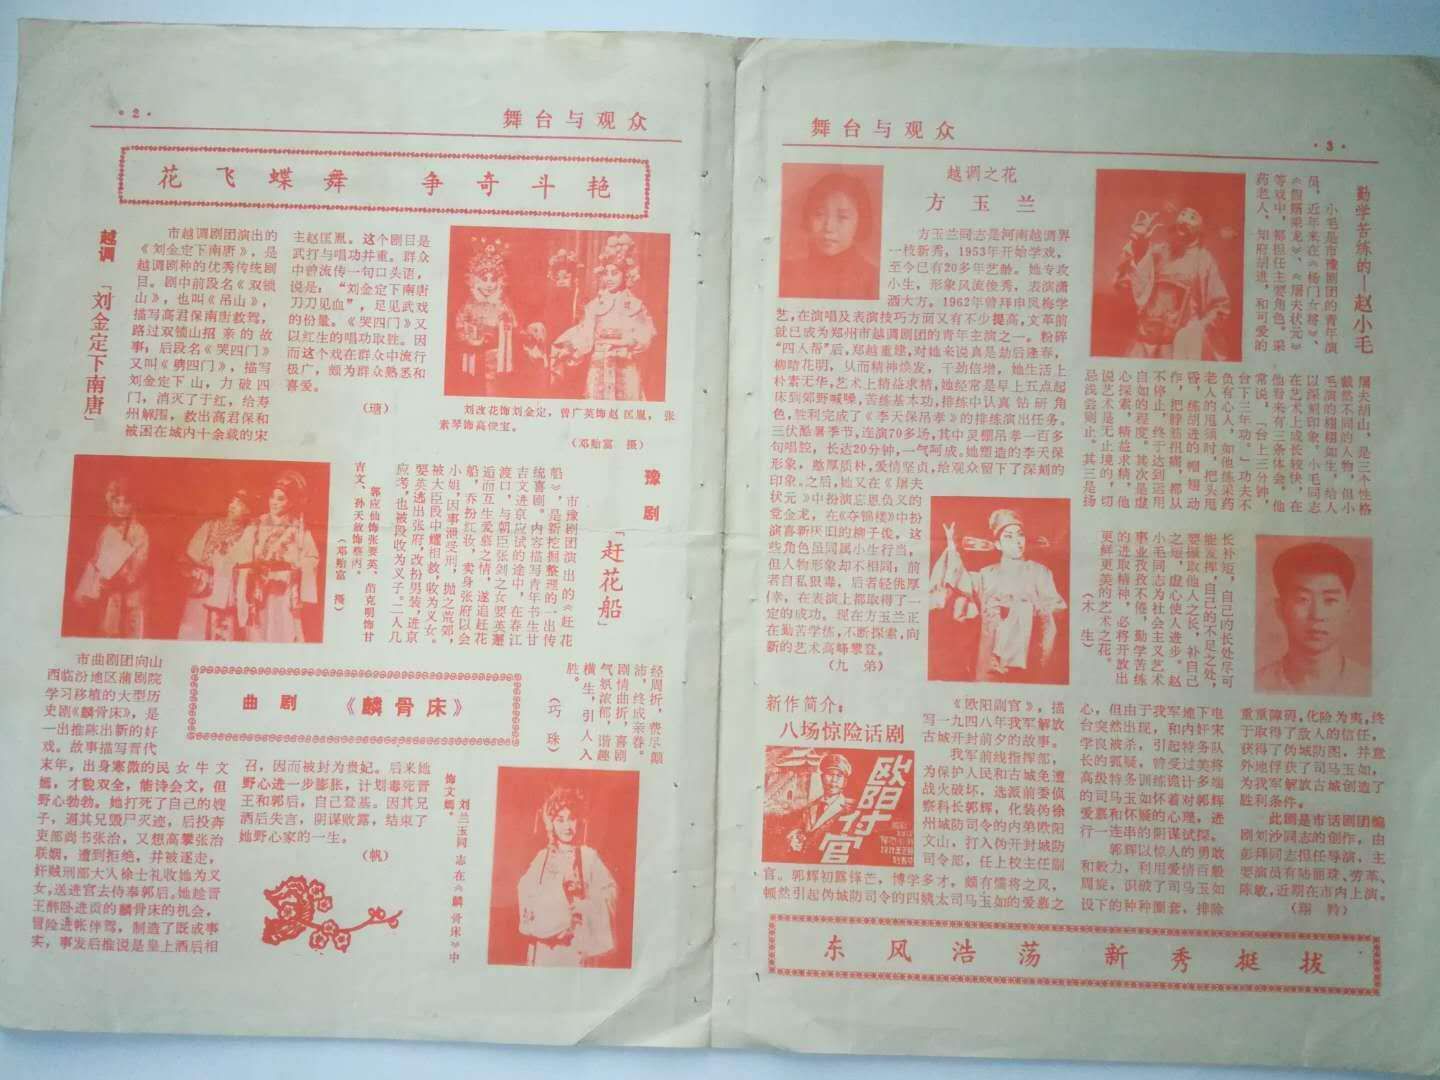 ·2·
舞台与观众
花飞蝶舞 争奇斗艳
越调「刘金定下南唐」
市越调剧团演出的
《刘金定下南唐》,是
越调剧种的优秀传统剧
目。剧中前段名《双锁
山》,也叫《吊山》,
描写高君保南唐救驾,
路过双锁山招亲的故
事;后段名《哭四门》
又叫《劈四门》,描写
刘金定下山,力破四
门,消灭了于红,给寿
州解围,救出高君保和
被困在城内十余载的宋
主赵匡胤。这个剧目是
武打与唱功并重。群众
中曾流传一句口头语,
说是:“刘金定下南唐
刀刀见血”,足见武戏
的份量。《哭四门》又
以红生的唱功取胜。因
而这个戏在群众中流行
极广,颇为群众熟悉和
喜爱。
刘改花饰刘金定,曾广英饰赵匡胤,张
素琴饰高俊宝。
(邓贻富 摄)
豫剧「赶花船」
市豫剧团演出的《赶花
船》,是新挖掘整理的一出传
统喜剧。内容描写青年书生甘
吉文进京应试的途中,在春江
渡口,与朝臣张剑之女要英邂
逅而互生爱慕之情,遂追赶花
船,乔扮红妆,卖身张府以会
小姐,因事泄受刑,抛之荒郊,
被大臣段中耀相救,收为义女。
要英逃出张府,改扮男装,进京
应考,也被段收为义子。二人几
经周折,费尽颠
沛,终成亲眷。
剧情曲折,喜剧
气氛浓郁,谐趣
横生,引人入
胜。
(巧珠)
郭应仙饰张要英、苗克明饰甘
吉文、孙天敏饰蔡丙。
(邓贻富 摄)
曲剧 《麟骨床》
市曲剧团向山
西临汾地区蒲剧院
学习移植的大型历
史剧《麟骨床》,是
一出推陈出新的好
戏。故事描写晋代
末年,出身寒微的民女牛文
嫣,才貌双全,能诗会文,但
野心勃勃。她打死了自己的嫂
子,逼其兄毁尸灭迹,后投奔
吏部尚书张治,又想高攀张治
联姻,遭到拒绝,并被逐走,
奸贼刑部大人徐士礼收她为义
女,送进宫去侍奉郭后,她趁晋
王醉卧进贡的麟骨床的机会,
冒险进帐伴驾,制造了既成事
实,事发后推说是皇上酒后相
召,因而被封为贵妃。后来她
野心进一步膨胀,计划毒死晋
王和郭后,自己登基。因其兄
酒后失言,阴谋败露,结束了
她野心家的一生。
(帆)
刘兰玉同志在《麟骨床》中
饰文嫣。
舞台与观众
·3·
越调之花
方玉兰
方玉兰同志是河南越调界
一枝新秀,1953年开始学戏,
至今已有20多年艺龄。她专攻
小生,形象风流俊秀,表演潇
洒大方。1962年曾拜申凤梅学
艺,在演唱及表演技巧方面又有不少提高,文革前
就已成为郑州市越调剧团的青年主演之一。粉碎
“四人帮”后,郑越重建,对她来说真是劫后逢春,
柳暗花明,从而精神焕发,干劲倍增,她生活上
朴素无华,艺术上精益求精,她经常是早上五点起
床到郊野喊嗓,苦练基本功,排练中认真钻研角
色,胜利完成了《李天保吊孝》的排练演出任务。
三伏酷暑季节,连演70多场,其中灵棚吊孝一百多
句唱腔,长达20分钟,一气呵成。她塑造的李天保
形象,憨厚质朴,爱情坚贞,给观众留下了深刻的
印象。之后,她又在《屠夫
状元》中扮演忘恩负义的
党金龙,在《夺锦楼》中扮
演喜新厌旧的柳子俊,这
些角色虽同属小生行当,
但人物形象却不相同;前
者自私狠毒,后者轻佻厚
俸,在表演上都取得了一
定的成功。现在方玉兰正
在勤苦学练,不断探索,向
新的艺术高峰攀登。
(九弟)
勤学苦练的—赵小毛
小毛是市豫剧团的青年演
员,近年来在《杨门女将》、
《假婿乘龙》、《屠夫状元》
等戏中,都担任主要角色。采
药老人,知府胡进,和可爱的
屠夫胡山,是三个性格
截然不同的人物,但小
毛演的栩栩如生,给人
以深刻印象。小毛同志
在艺术上成长较快,在
他看来有三条体会。他
常说,“台上三分钟,
台下三年功。”功夫不
负有心人,如他练采药
老人的甩须时,把头甩
昏,练胡进的帽翅动
作,把脖筋扭痛,都从
不停止,终于达到运用
自如的程度。其次是虚
心探索,精益求精,他
说艺术是无止境的,切
忌浅尝则止。其三是扬
长补短,自己的长处尽可
能发挥,自己的不足之处,
要摄取他人之长,补自己
之短,虚心使人进步。赵
小毛同志为社会主义艺术
事业孜孜不倦,勤学苦练
的进取精神,必将开放出
更鲜更美的艺术之花。
(木生)
新作简介:
八场惊险话剧
欧阳付官
《欧阳副官》,描
写一九四八年我军解放
古城开封前夕的故事。
我军前线指挥部,
为保护人民和古城免遭
战火破坏,选派前委侦
察科长郭辉,化装伪徐
州城防司令的内弟欧阳
文山,打入伪开封城防
司令部,任上校主任副
官。郭辉初露锋芒,博学多才,颇有儒将之风,
顿然引起伪城防司令的四姨太司马玉如的爱慕之
心,但由于我军地下电
台突然出现,和内奸宋
学良被杀,引起特务队
长的甄疑,曾受过美将
高级特务训练诡计多端
的司马玉如怀着对郭辉
爱慕和怀疑的心理,进
行一连串的阴谋试探。
郭辉以惊人的勇敢
和毅力,利用爱情百般
周旋,识破了司马玉如
设下的种种圈套,排除
重重障碍,化险为夷,终
于取得了敌人的信任,
获得了伪城防图,并意
外地俘获了司马玉如,
为我军解放古城创造了
胜利条件。
此剧是市话剧团编
剧刘沙同志的创作,由
彭拜同志担任导演,主
要演员有陆丽珠、劳革、
陈敏,近期在市内上演。
(翔羚)
东风浩荡 新秀挺拔